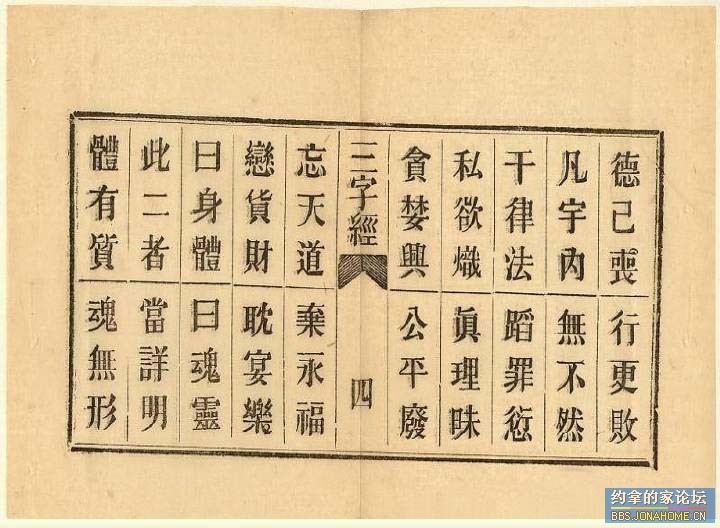 德已喪 行更敗
凡宇內 無不然
干律法 蹈罪愆
私欲熾 眞理昧
貪婪興 公平廢
三字經 四
忘天道 棄永福
戀貨財 耽宴樂
曰身體 曰魂靈
此二者 當詳明
體有質 魂無形
约拿的家论坛
BBS.JONAHOME.CN